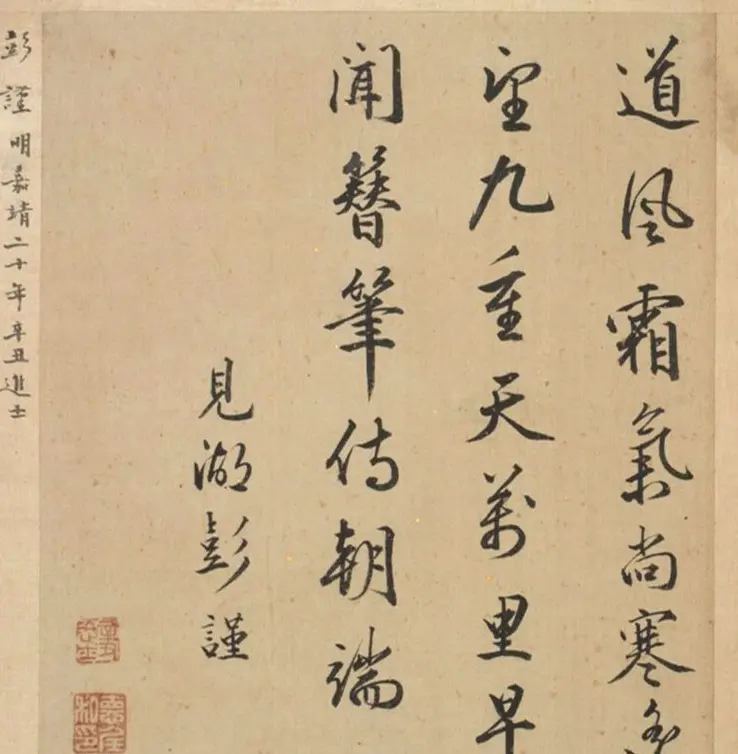 道風霜氣尚寒
望九重天萬里早
聞簪筆侍朝端
見湖彭謹
彭謹明嘉靖二十年辛丑進士